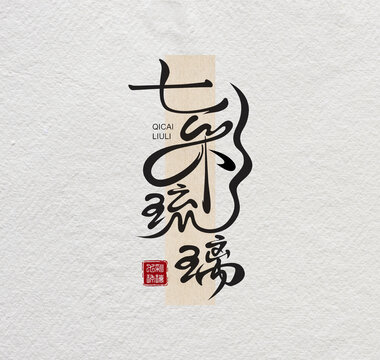 七彩
QICAI
LIULI
琉
璃